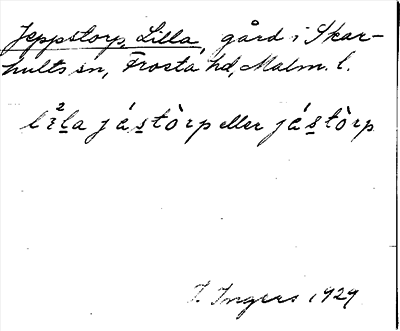 Jeppstorp, Lilla, gård i Skar-
hults sn, Frosta hd, Malm. l.
lı̊²la jástòrp eller jástòrp
I. Ingers 1929